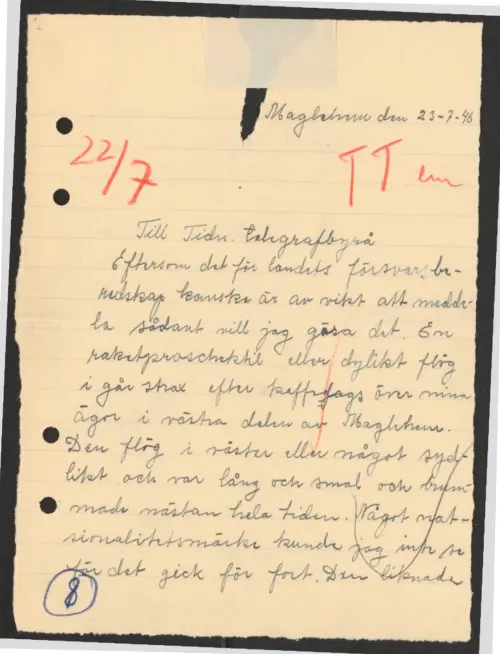 Maglehem den 23-7-46
22/7
TT em
Till Tidn. telegrafbyrå
Eftersom det för landets försvarsbe-
redskap kanske är av vikt att medde-
la sådant vill jag göra det. En
raketproschektil eller dylikt flög
i går strax efter kaffedags över mina
ägor i västra delen av Maglehem.
Den flög i väster eller något syd-
likt och var lång och smal och brum-
made nästan hela tiden. Något nat-
sionalitetsmäske kunde jag inte se
för det gick för fort. Den liknade
8